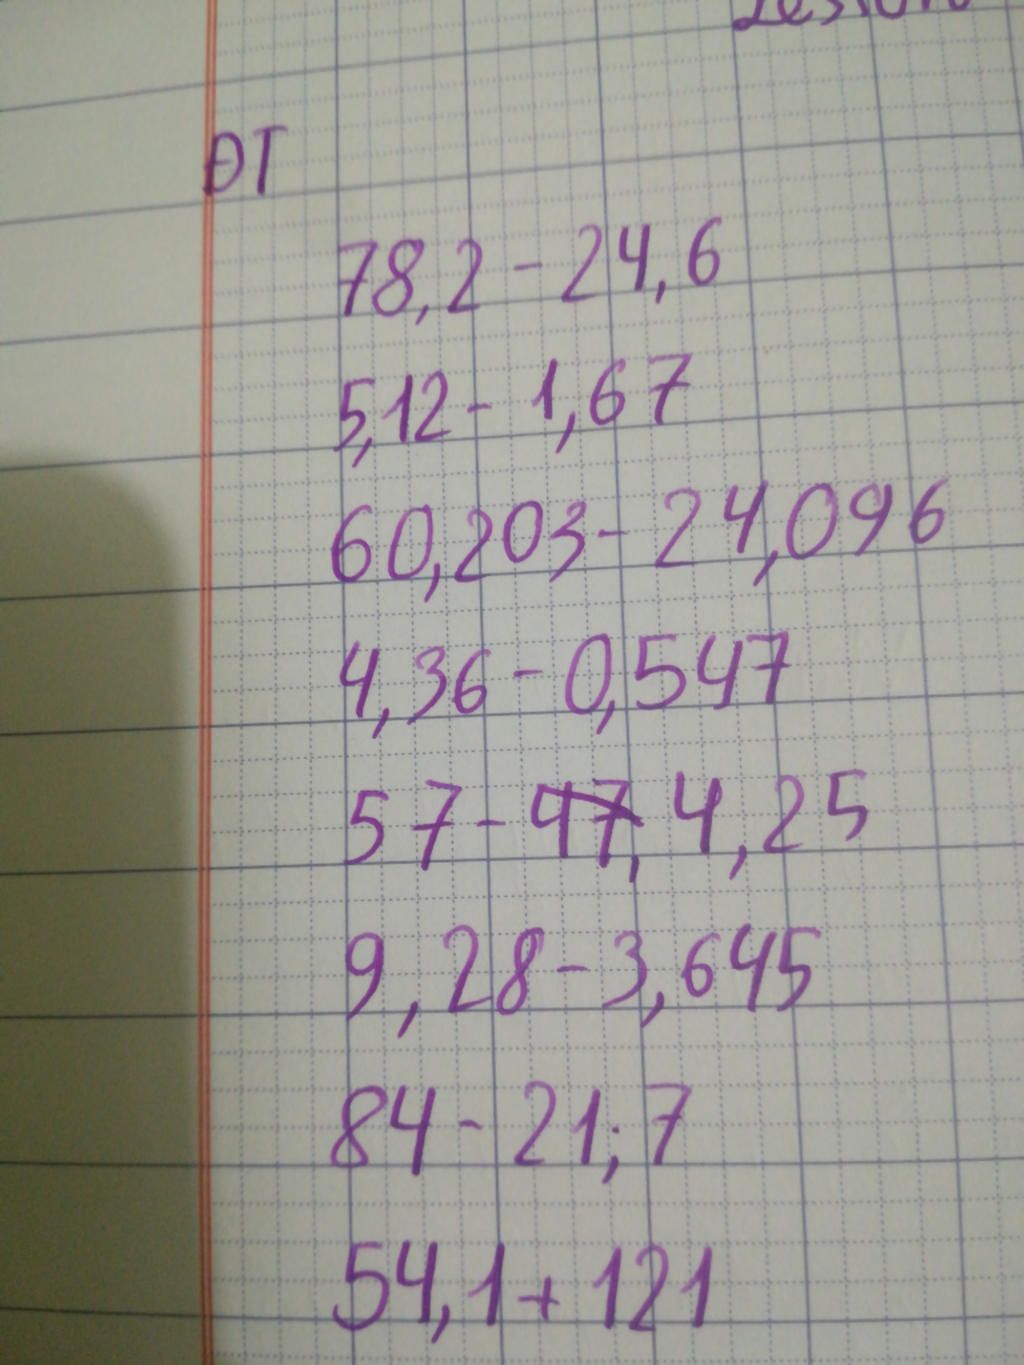 ĐT
78,2 - 24,6
5,12 - 1,67
60,203 - 24,096
4,36 - 0,547
57 - 4,25
9,28 - 3,645
84 - 21,7
54,1 + 121